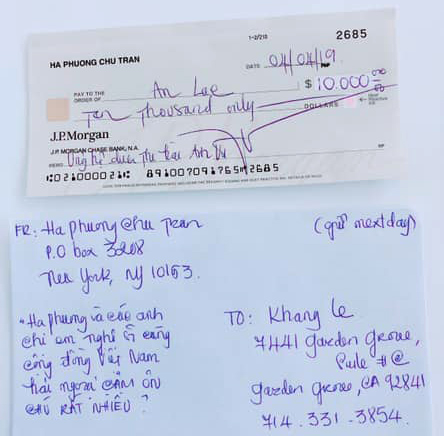 1-2/210
2685
HA PHUONG CHU TRAN
DATE 04/04/19
PAY TO THE
ORDER OF An Lac $ 10.000 00
Ten thousand only DOLLARS
J.P.Morgan
J.P. MORGAN CHASE BANK, N.A.
MEMO Ủng hộ
FR: Ha Phuong Chu Tran
P.O box
New York, NY 10153.
(gửi nextday)
"Ha phuong và các anh
chị em nghệ sĩ cùng
cộng đồng Việt Nam
hải ngoại CẢM ƠN
CHÚ RẤT NHIỀU
TO: Khang Le
7441 garden grove,
garden grove, CA 92841
714.331.3854.